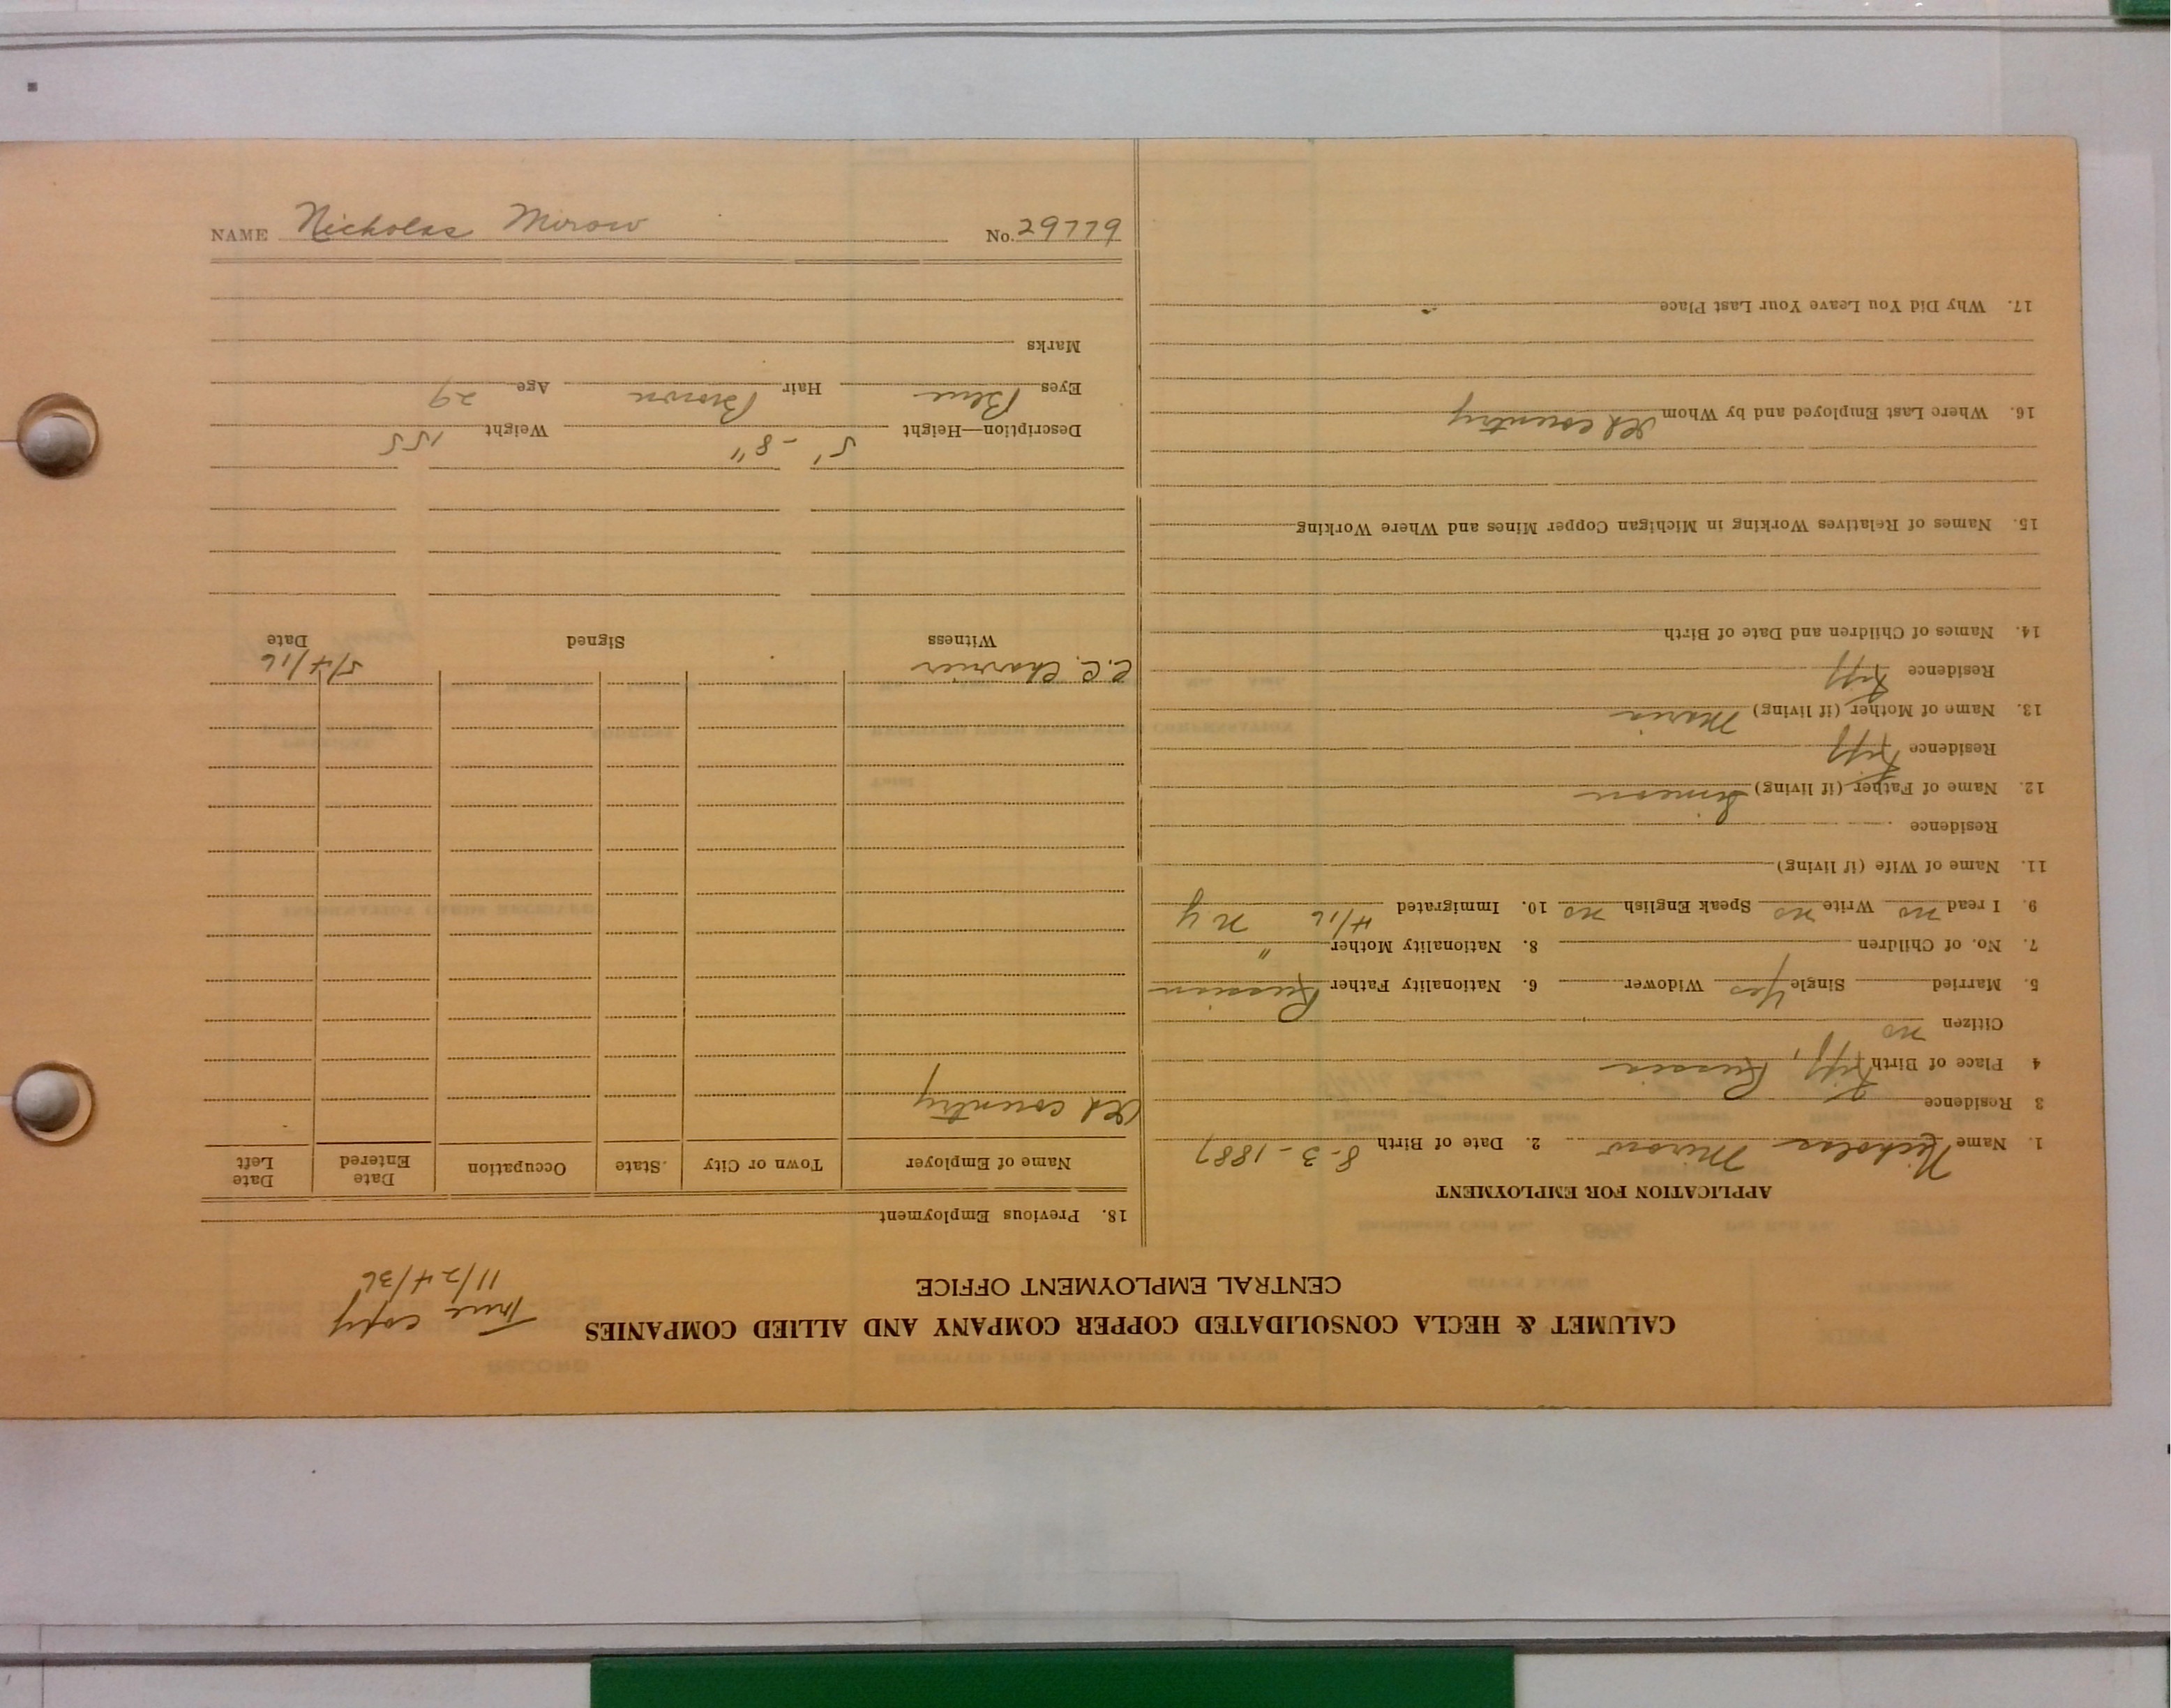 CALUMET & HECLA CONSOLIDATED COPPER COMPANY AND ALLIED COMPANIES
CENTRAL EMPLOYMENT OFFICE
True copy
11/24/36
APPLICATION FOR EMPLOYMENT
1. Name Nicholas Mirow 2. Date of Birth 8-3-1887
3 Residence
4 Place of Birth Kiff, Russia
Citizen no
5. Married Single Yes Widower 6. Nationality Father Russian
7. No. of Children 8. Nationality Mother "
9. I read no Write no Speak English no 10. Immigrated 4/16 N Y
11. Name of Wife (if living)
Residence
12. Name of Father (if living) Simeon
Residence Kiff
13. Name of Mother (if living) Maria
Residence Kiff
14. Names of Children and Date of Birth
15. Names of Relatives Working in Michigan Copper Mines and Where Working
16. Where Last Employed and by Whom Old country
17. Why Did You Leave Your Last Place
18. Previous Employment
Name of Employer Town or City State Occupation Date Entered Date Left
Old country
C.C. Charrier 5/4/16
Witness Signed Date
Description—Height 5' - 8" Weight 155
Eyes Blue Hair Brown Age 29
Marks
NAME Nicholas Mirow No. 29779